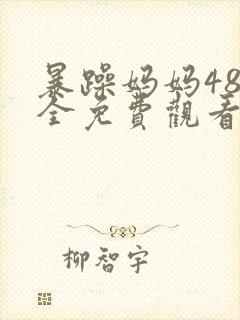 暴躁妈妈48
全免費觀看
柳智宇